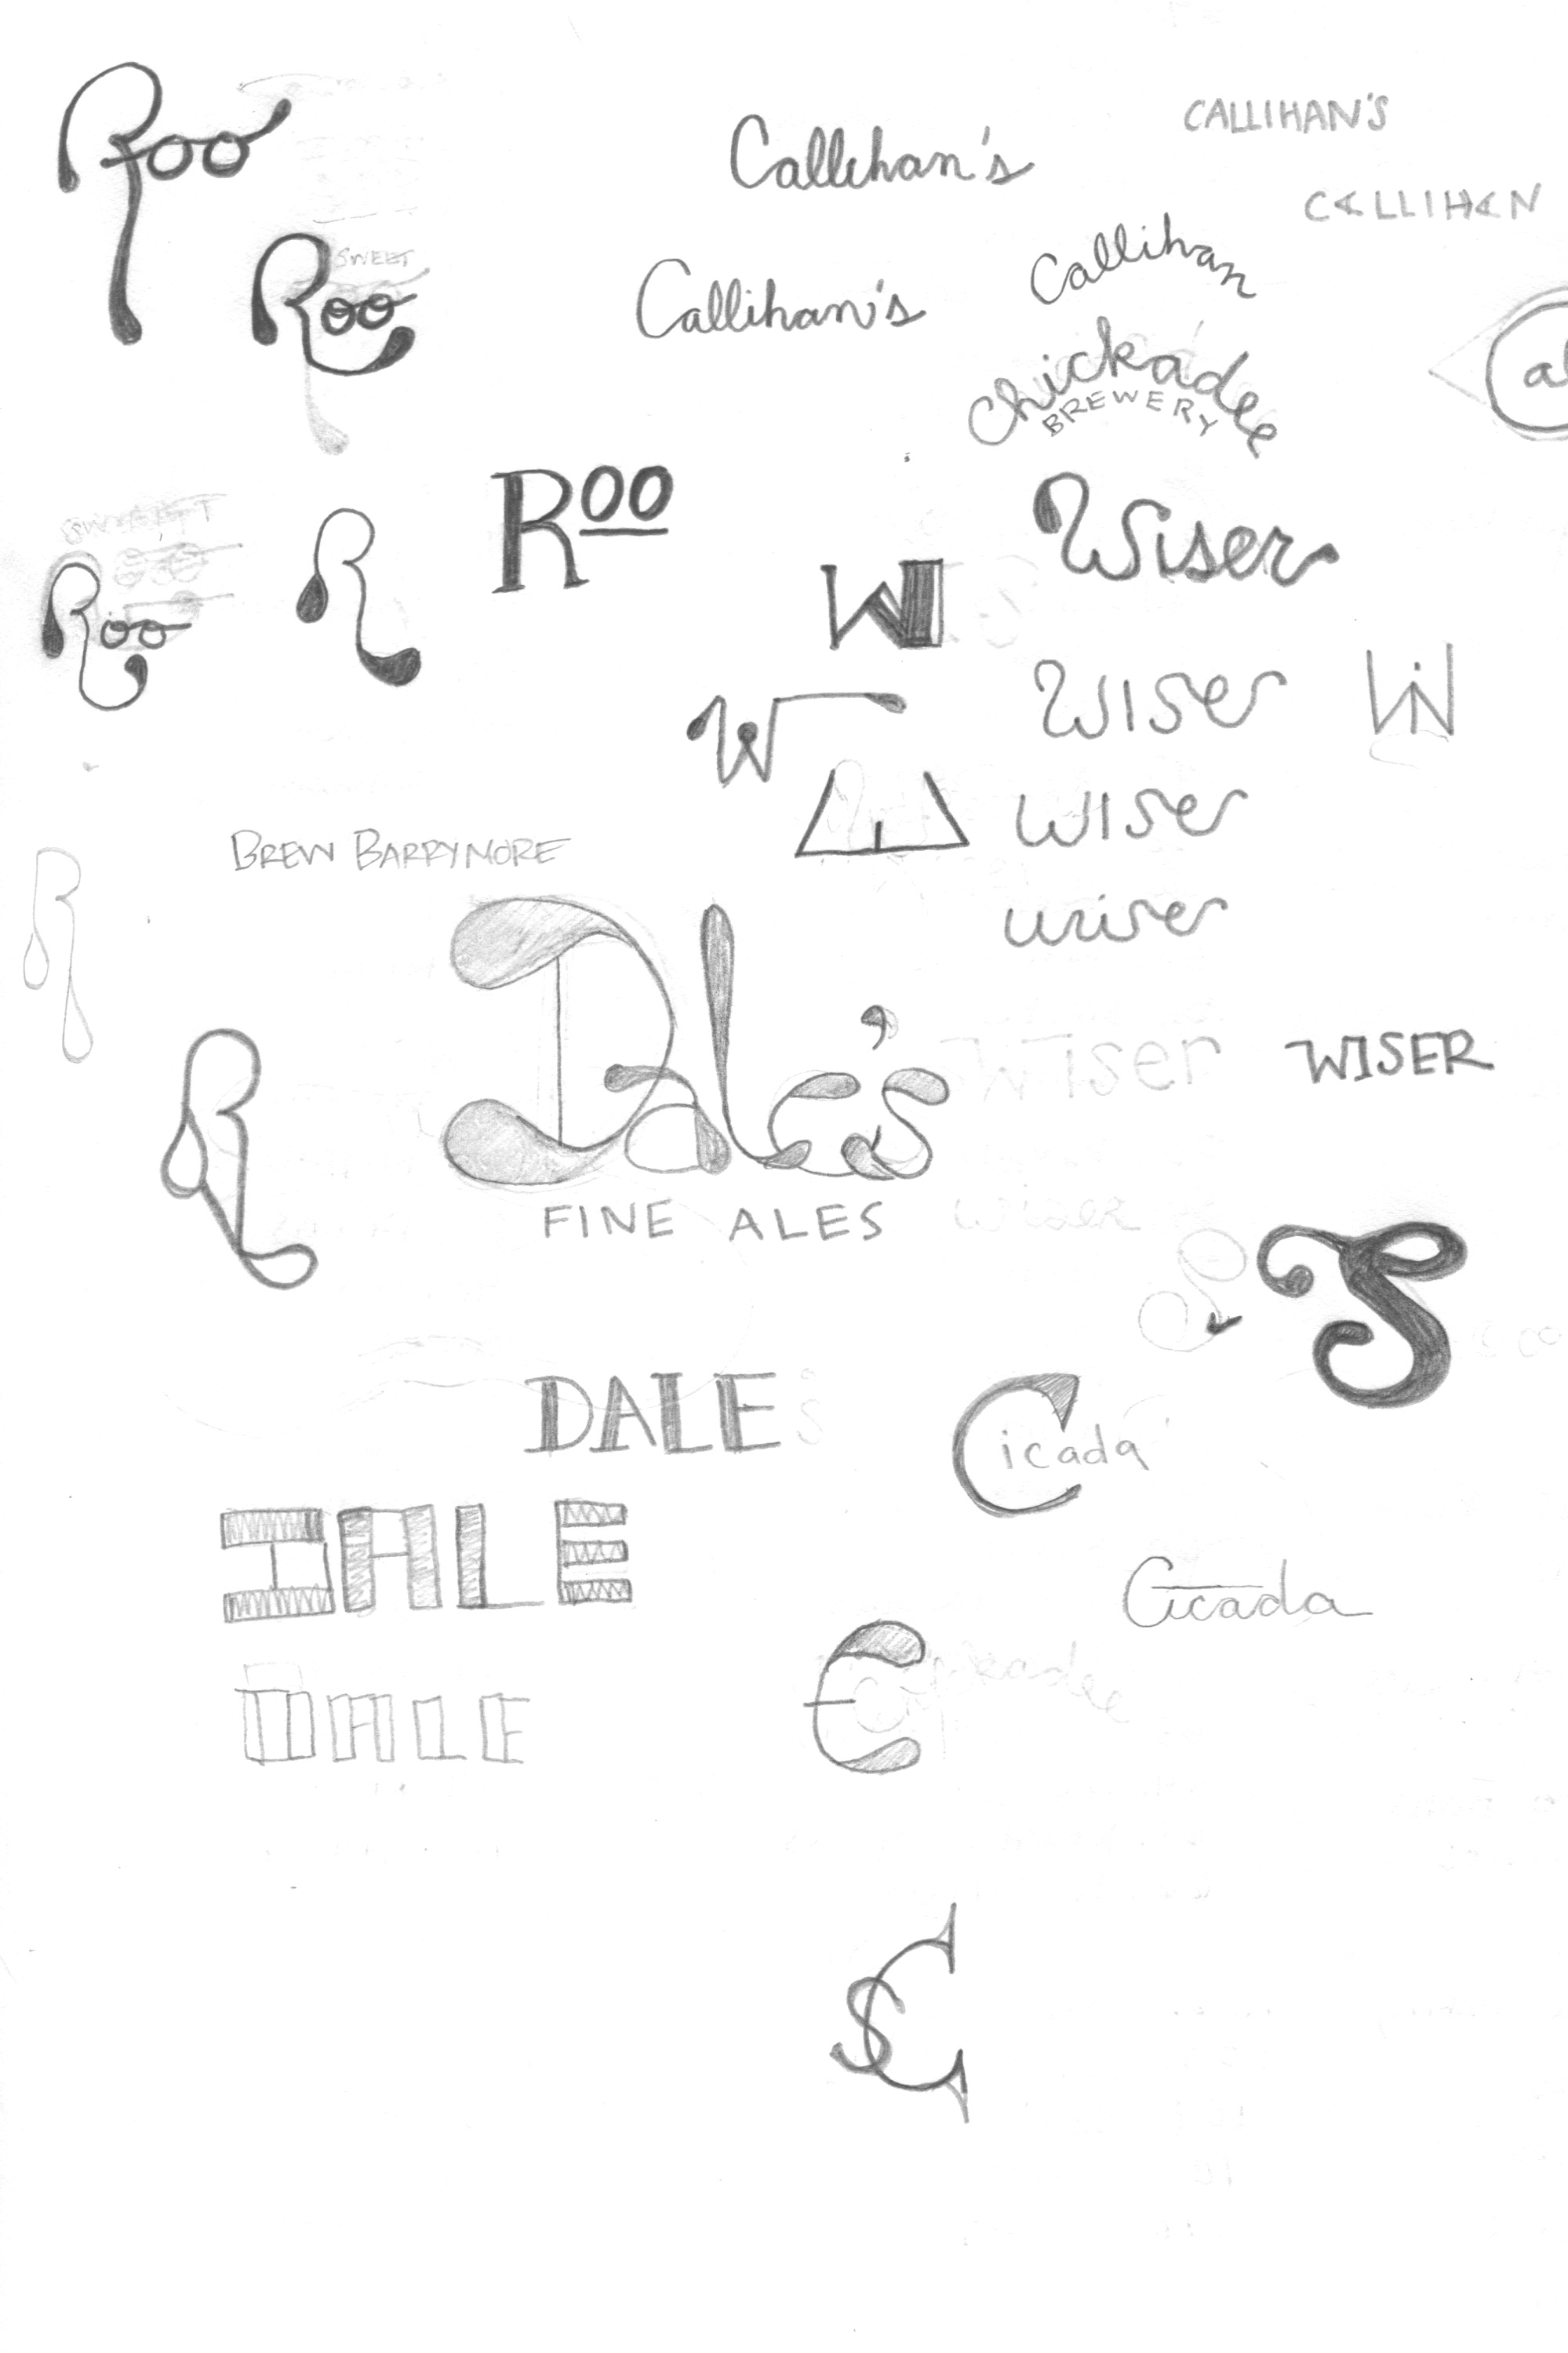 Roo
SWEET
Roo
Callihan's
CALLIHAN'S
CALLIHAN
Callihan's
Callihan
Chickadee
BREWERY
al
SWEET
Roo
R
Roo
WI
Wiser
W
wiser
WiN
wiser
wiser
BREW BARRYMORE
R
Dale's
FINE ALES
Wiser
WISER
R
wiser
S
S
DALE'S
Cicada
DALE
Cicada
DALE
C
Chickadee
SC